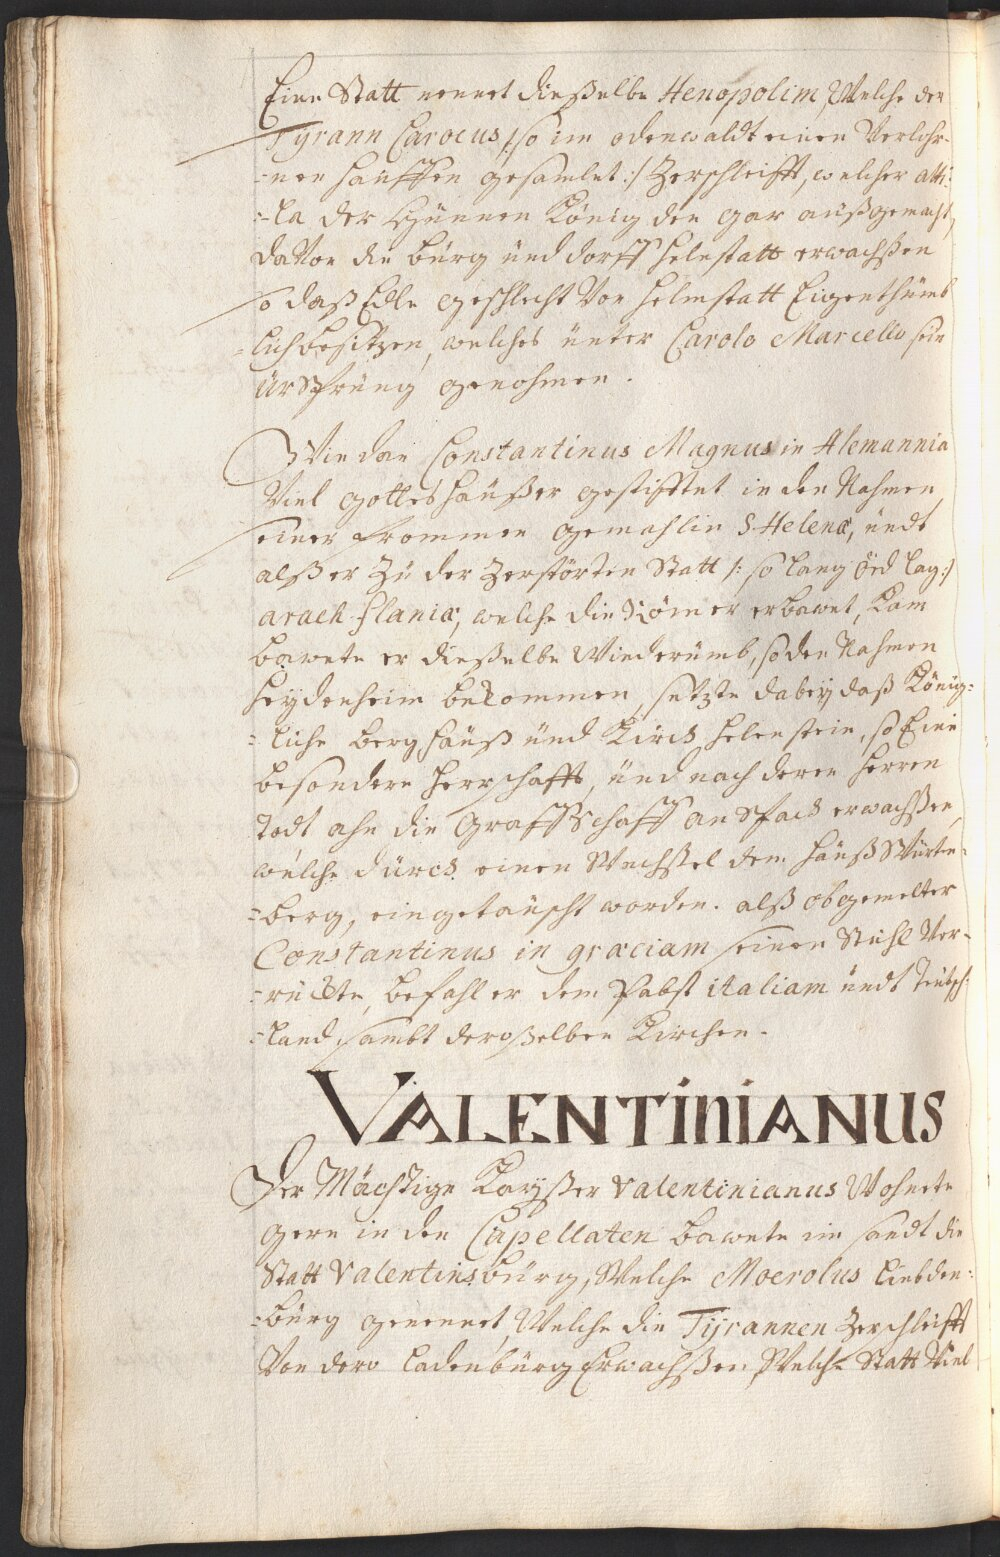 Eine Statt nennet dieselbe Henopolim, Welche der
Tyrann Carocus /: so im odenwaldt einen Verlohr-
=nen hauffen gesamlet :/ Zerschleifft, welcher atti:
=la der Hünnen König den gar außgemacht,
davon die bürg und dorff helmstatt erwachßen
so daß Edle geschlecht Von helmstatt Eigenthümb
=lich besitzen, welches unter Carolo Marcello sein
ürSprüng genohmen.
Wie dan Constantinus Magnus in Alemannia
Viel gotteshäüßer gestifftet in den Nahmen
seiner frommen gemahlin S Helenæ, undt
alß er Zu der Zerstörten Statt /: so lang öed lag :/
arach flaniæ, welche die Römer erbawet, kam
bawete er dieselbe Wiederümb, so den Nahmen
heydenheim bekommen, setzte dabeÿ daß König-
=liche berghauß und Kirch helenstein, so Eine
besondere herrschafft, und nach deren herren
Todt ahn die GraffSchafft anSpach erwachßen,
welche dürch einen Wechßel dem hauß Würte-
=berg, eingetauscht worden. alß obgemelter
Constantinus in græciam seinen Stuhl Ver-
=rückte, befahl er dem Pabst italiam undt Teütsch-
=land, sambt deroselben Kirchen.
VALENTINIANUS
Der Mächtige Kayßer Valentinianus Wohnete
gern in den Capellaten bawete im sandt die
Statt Valentinsbürg, Welche Moerolus liebden:
=bürg genennet, Welche die Tÿrannen Zerschleifft
Von dero ladenbürg Erwachßen, Welche Statt Viel